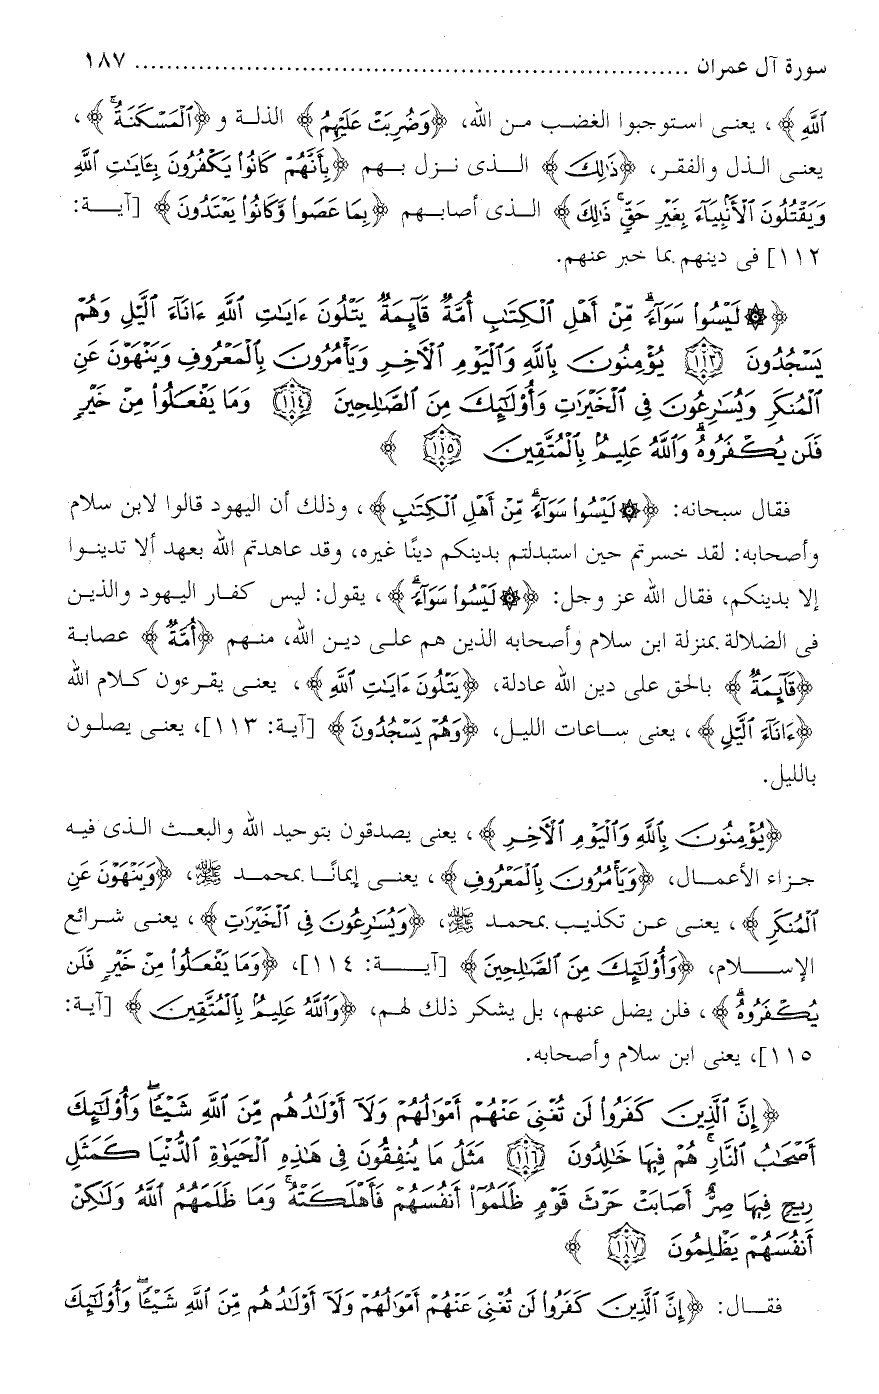 سورة آل عمران ........................................................................ ١٨٧
ٱللَّهِ﴾، يعنى استوجبوا الغضب من الله، ﴿وَضُرِبَتْ عَلَيْهِمُ﴾ الذلة و﴿ٱلْمَسْكَنَةُ﴾،
يعنى الذل والفقر، ﴿ذَٰلِكَ﴾ الذى نزل بهم ﴿بِأَنَّهُمْ كَانُوا۟ يَكْفُرُونَ بِـَٔايَـٰتِ ٱللَّهِ
وَيَقْتُلُونَ ٱلْأَنۢبِيَآءَ بِغَيْرِ حَقٍّ ۚ ذَٰلِكَ﴾ الذى أصابهم ﴿بِمَا عَصَوا۟ وَّكَانُوا۟ يَعْتَدُونَ﴾ [آية:
١١٢] فى دينهم بما خبر عنهم.
﴿۞ لَيْسُوا۟ سَوَآءً ۗ مِّنْ أَهْلِ ٱلْكِتَـٰبِ أُمَّةٌ قَآئِمَةٌ يَتْلُونَ ءَايَـٰتِ ٱللَّهِ ءَانَآءَ ٱلَّيْلِ وَهُمْ
يَسْجُدُونَ ١١٣ يُؤْمِنُونَ بِٱللَّهِ وَٱلْيَوْمِ ٱلْـَٔاخِرِ وَيَأْمُرُونَ بِٱلْمَعْرُوفِ وَيَنْهَوْنَ عَنِ
ٱلْمُنكَرِ وَيُسَـٰرِعُونَ فِى ٱلْخَيْرَٰتِ وَأُو۟لَـٰٓئِكَ مِنَ ٱلصَّـٰلِحِينَ ١١٤ وَمَا يَفْعَلُوا۟ مِنْ خَيْرٍ
فَلَن يُكْفَرُوهُ ۗ وَٱللَّهُ عَلِيمٌۢ بِٱلْمُتَّقِينَ ١١٥﴾
فقال سبحانه: ﴿۞ لَيْسُوا۟ سَوَآءً ۗ مِّنْ أَهْلِ ٱلْكِتَـٰبِ﴾، وذلك أن اليهود قالوا لابن سلام
وأصحابه: لقد خسرتم حين استبدلتم بدينكم دينًا غيره، وقد عاهدتم الله بعهد ألا تدينوا
إلا بدينكم، فقال الله عز وجل: ﴿۞ لَيْسُوا۟ سَوَآءً ۗ﴾، يقول: ليس كفار اليهود والذين
فى الضلالة بمنزلة ابن سلام وأصحابه الذين هم على دين الله، منهم ﴿أُمَّةٌ﴾ عصابة
﴿قَآئِمَةٌ﴾ بالحق على دين الله عادلة، ﴿يَتْلُونَ ءَايَـٰتِ ٱللَّهِ﴾، يعنى يقرءون كلام الله
﴿ءَانَآءَ ٱلَّيْلِ﴾، يعنى ساعات الليل، ﴿وَهُمْ يَسْجُدُونَ﴾ [آية: ١١٣]، يعنى يصلون
بالليل.
﴿يُؤْمِنُونَ بِٱللَّهِ وَٱلْيَوْمِ ٱلْـَٔاخِرِ﴾، يعنى يصدقون بتوحيد الله والبعث الذى فيه
جزاء الأعمال، ﴿وَيَأْمُرُونَ بِٱلْمَعْرُوفِ﴾، يعنى إيمانًا بمحمد ﷺ، ﴿وَيَنْهَوْنَ عَنِ
ٱلْمُنكَرِ﴾، يعنى عن تكذيب بمحمد ﷺ، ﴿وَيُسَـٰرِعُونَ فِى ٱلْخَيْرَٰتِ﴾، يعنى شرائع
الإسلام، ﴿وَأُو۟لَـٰٓئِكَ مِنَ ٱلصَّـٰلِحِينَ﴾ [آية: ١١٤]، ﴿وَمَا يَفْعَلُوا۟ مِنْ خَيْرٍ فَلَن
يُكْفَرُوهُ ۗ﴾، فلن يضل عنهم، بل يشكر ذلك لهم، ﴿وَٱللَّهُ عَلِيمٌۢ بِٱلْمُتَّقِينَ﴾ [آية:
١١٥]، يعنى ابن سلام وأصحابه.
﴿إِنَّ ٱلَّذِينَ كَفَرُوا۟ لَن تُغْنِىَ عَنْهُمْ أَمْوَٰلُهُمْ وَلَآ أَوْلَـٰدُهُم مِّنَ ٱللَّهِ شَيْـًٔا ۖ وَأُو۟لَـٰٓئِكَ
أَصْحَـٰبُ ٱلنَّارِ ۚ هُمْ فِيهَا خَـٰلِدُونَ ١١٦ مَثَلُ مَا يُنفِقُونَ فِى هَـٰذِهِ ٱلْحَيَوٰةِ ٱلدُّنْيَا كَمَثَلِ
رِيحٍ فِيهَا صِرٌّ أَصَابَتْ حَرْثَ قَوْمٍ ظَلَمُوٓا۟ أَنفُسَهُمْ فَأَهْلَكَتْهُ ۚ وَمَا ظَلَمَهُمُ ٱللَّهُ وَلَـٰكِنْ
أَنفُسَهُمْ يَظْلِمُونَ ١١٧﴾
فقال: ﴿إِنَّ ٱلَّذِينَ كَفَرُوا۟ لَن تُغْنِىَ عَنْهُمْ أَمْوَٰلُهُمْ وَلَآ أَوْلَـٰدُهُم مِّنَ ٱللَّهِ شَيْـًٔا ۖ وَأُو۟لَـٰٓئِكَ